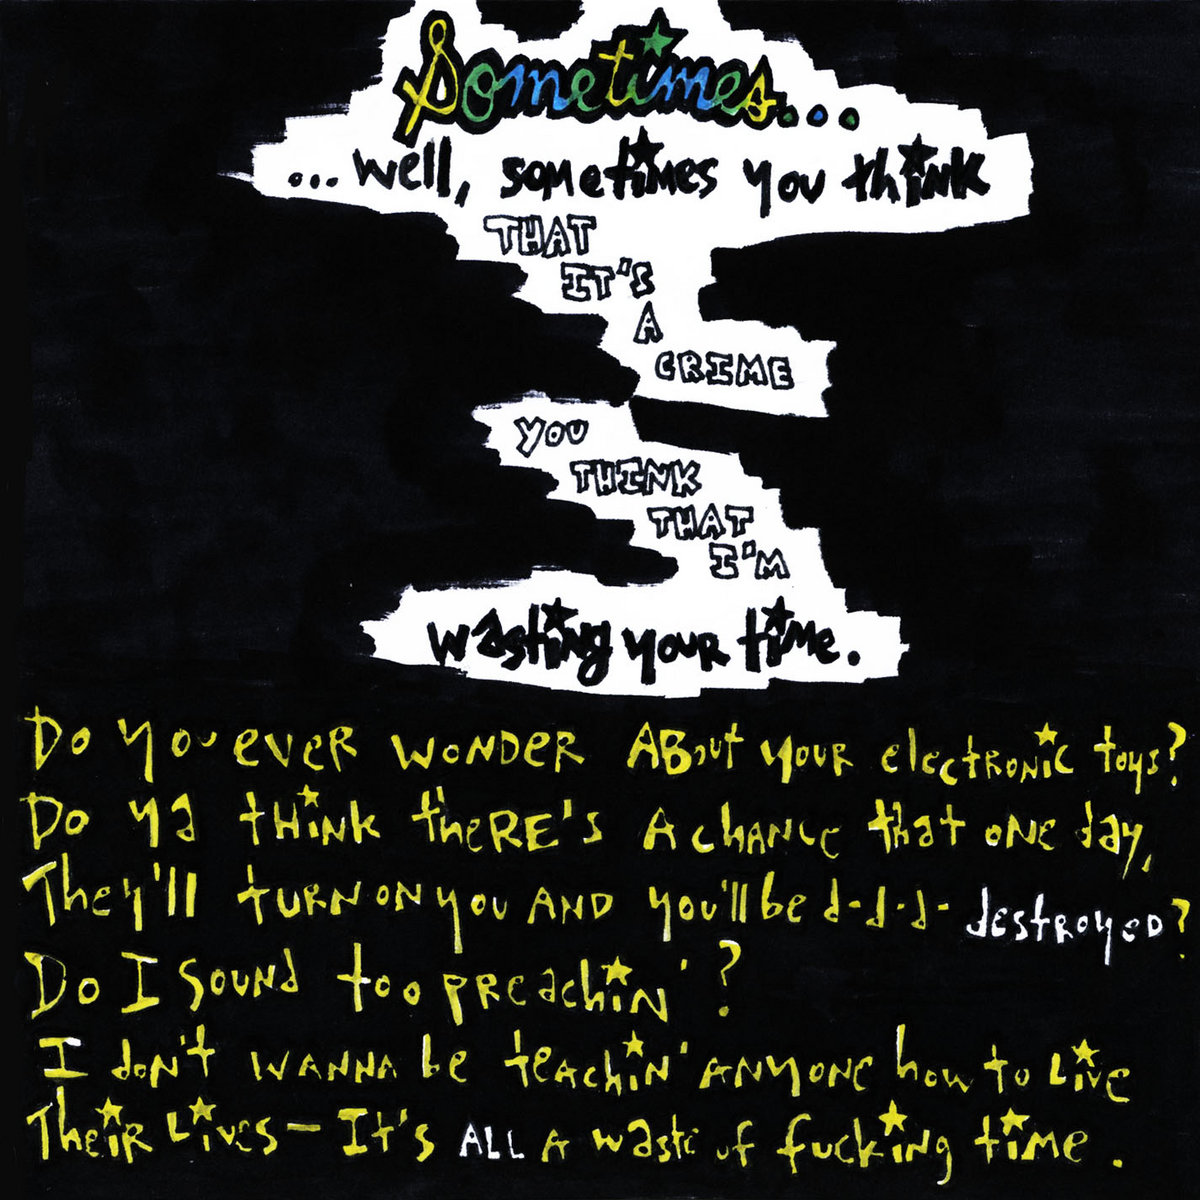 Sometimes...
...well, sometimes you think
THAT
IT'S
A
CRIME
you
THINK
THAT
I'M
wasting your time.
Do you ever wonder about your electronic toys?
Do ya think there's a chance that one day,
They'll turn on you and you'll be d-d-d-destroyed?
Do I sound too preachin'?
I don't wanna be teachin' anyone how to live
Their lives – It's ALL a waste of fucking time.